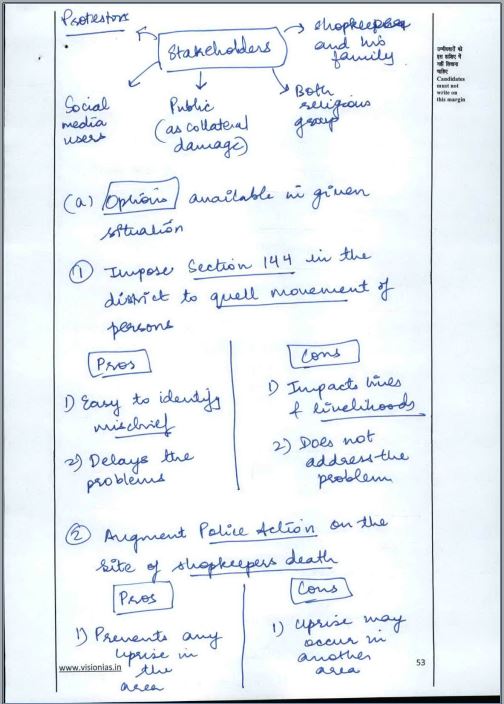 Protestors
Stakeholders
shopkeeper
and his
family
Social
media
users
Public
(as collateral
damage)
Both
religious
group
उम्मीदवारों को
इस हाशिए में
नहीं लिखना
चाहिए
Candidates
must not
write on
this margin
(a) Options available in given
situation
① Impose Section 144 in the
district to quell movement of
persons
Pros
1) Easy to identify
mischief
2) Delays the
problems
Cons
1) Impacts lives
& livelihoods
2) Does not
address the
problem
② Augment Police Action on the
site of shopkeepers death
Pros
1) Prevents any
uprise in
the
area
Cons
1) Uprise may
occur in
another
area
www.visionias.in
53